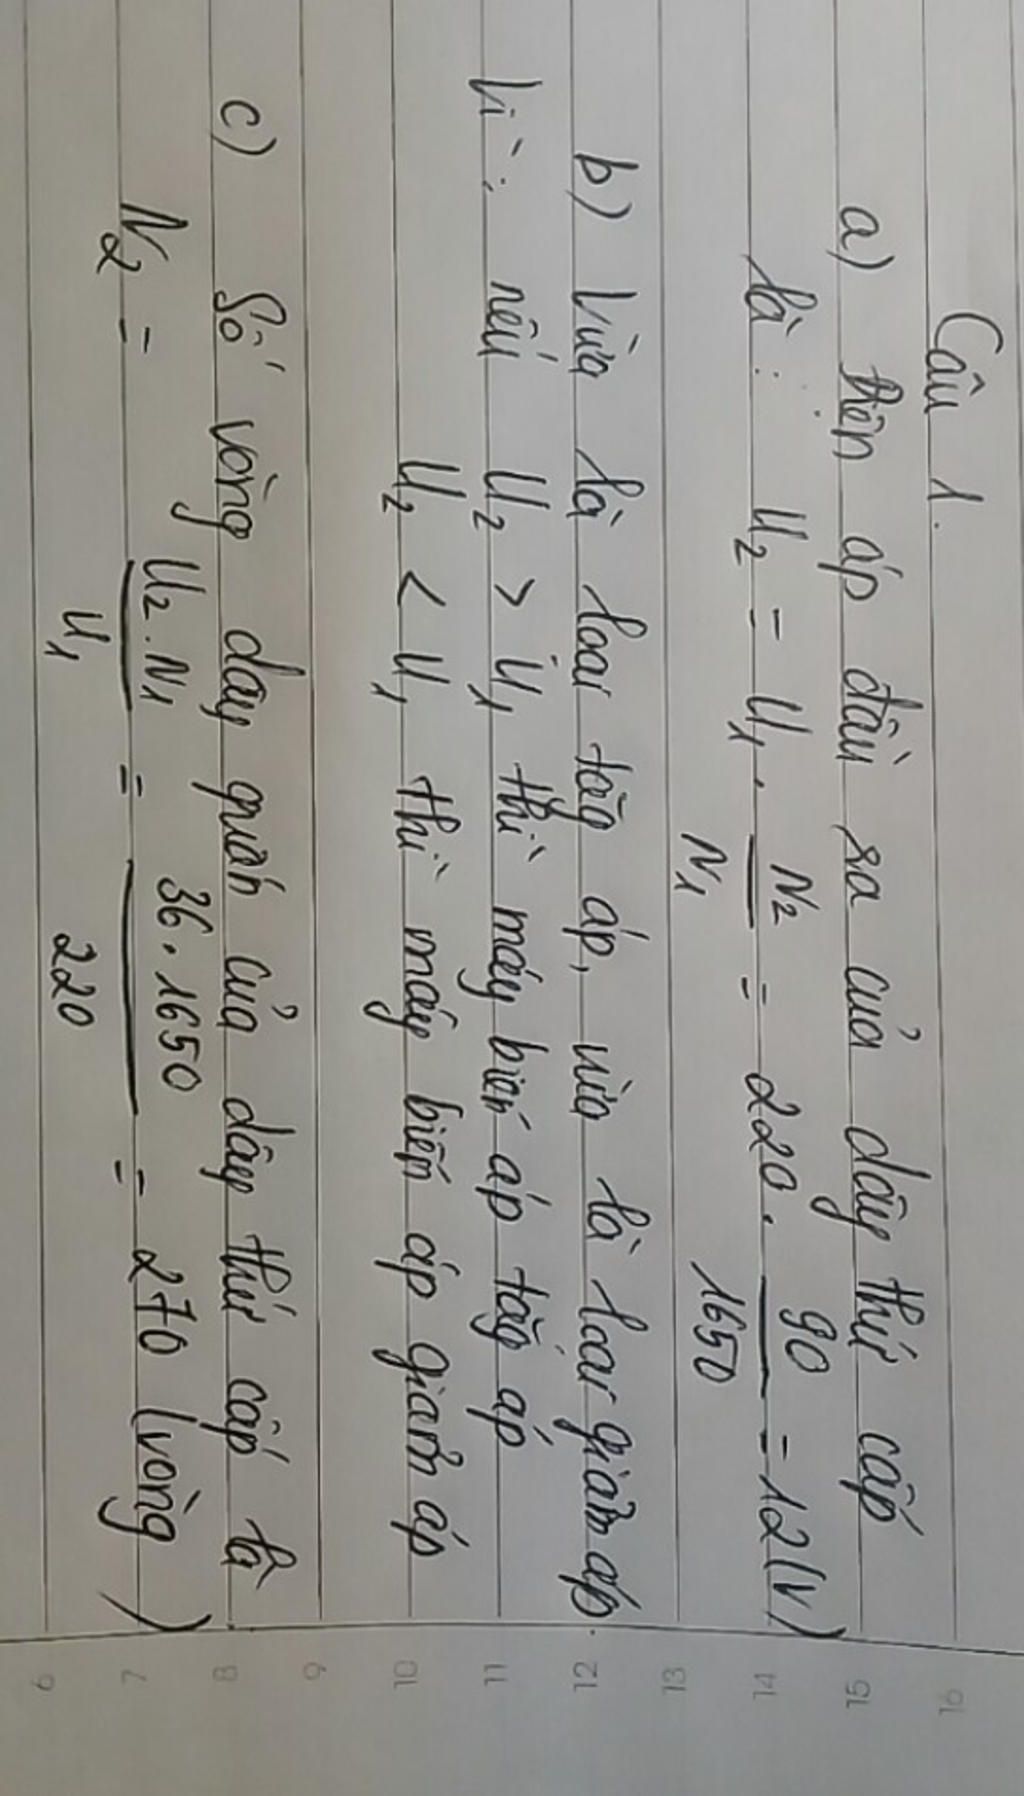 Câu 1.
a) Điện áp đầu ra của dây thứ cấp
là : U₂ = U₁ . N₂/N₁ = 220 . 90/1650 = 12 (V)
b) Vừa là loại tăg áp, vừa là loại giảm áp.
Vì : nếu U₂ > U₁ thì máy biến áp tăg áp
U₂ < U₁ thì máy biến áp giảm áp
c) Số vòng dây quấn của dây thứ cấp là
N₂ = U₂.N₁/U₁ = 36.1650/220 = 270 (vòng)
16
15
14
13
12
11
10
9
8
7
6